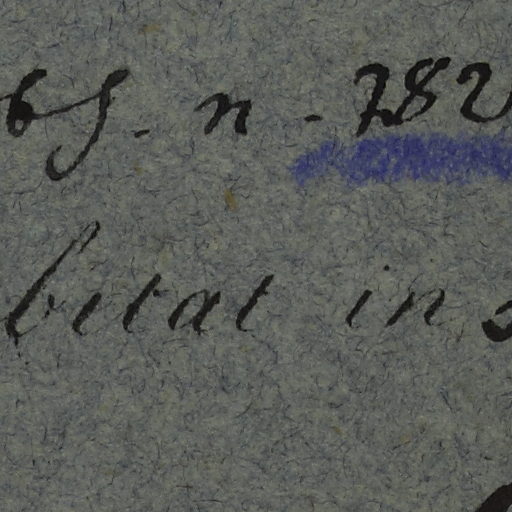 bs. n. 782
bitat in